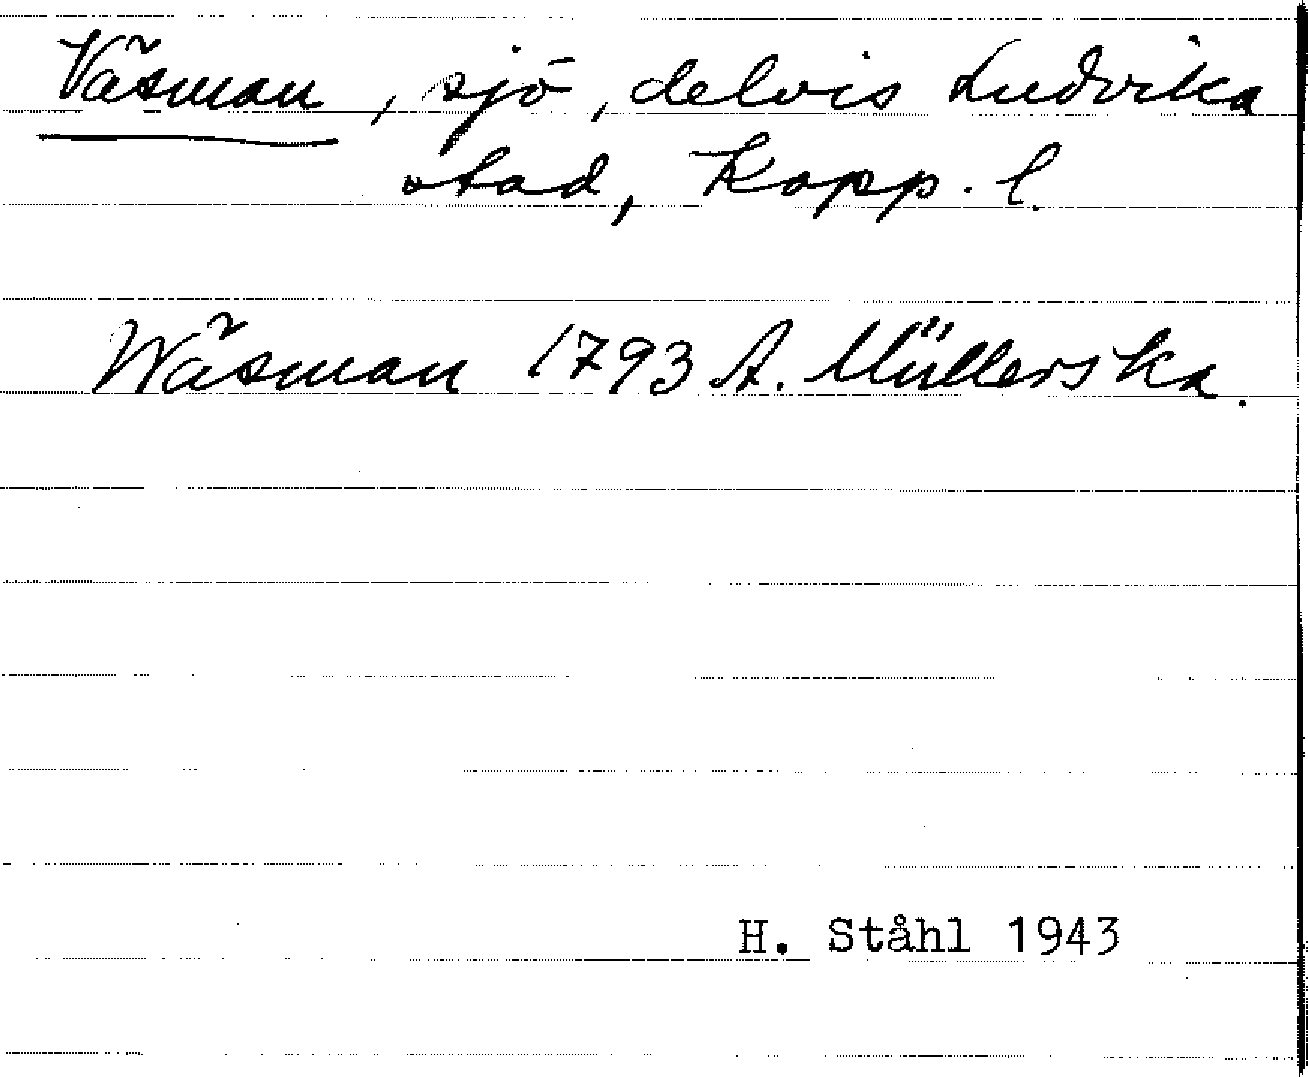 Väsman, sjö, delvis Ludvika
stad, Kopp. l.
Wäsman 1793 A. Müllerska.
H. Ståhl 1943